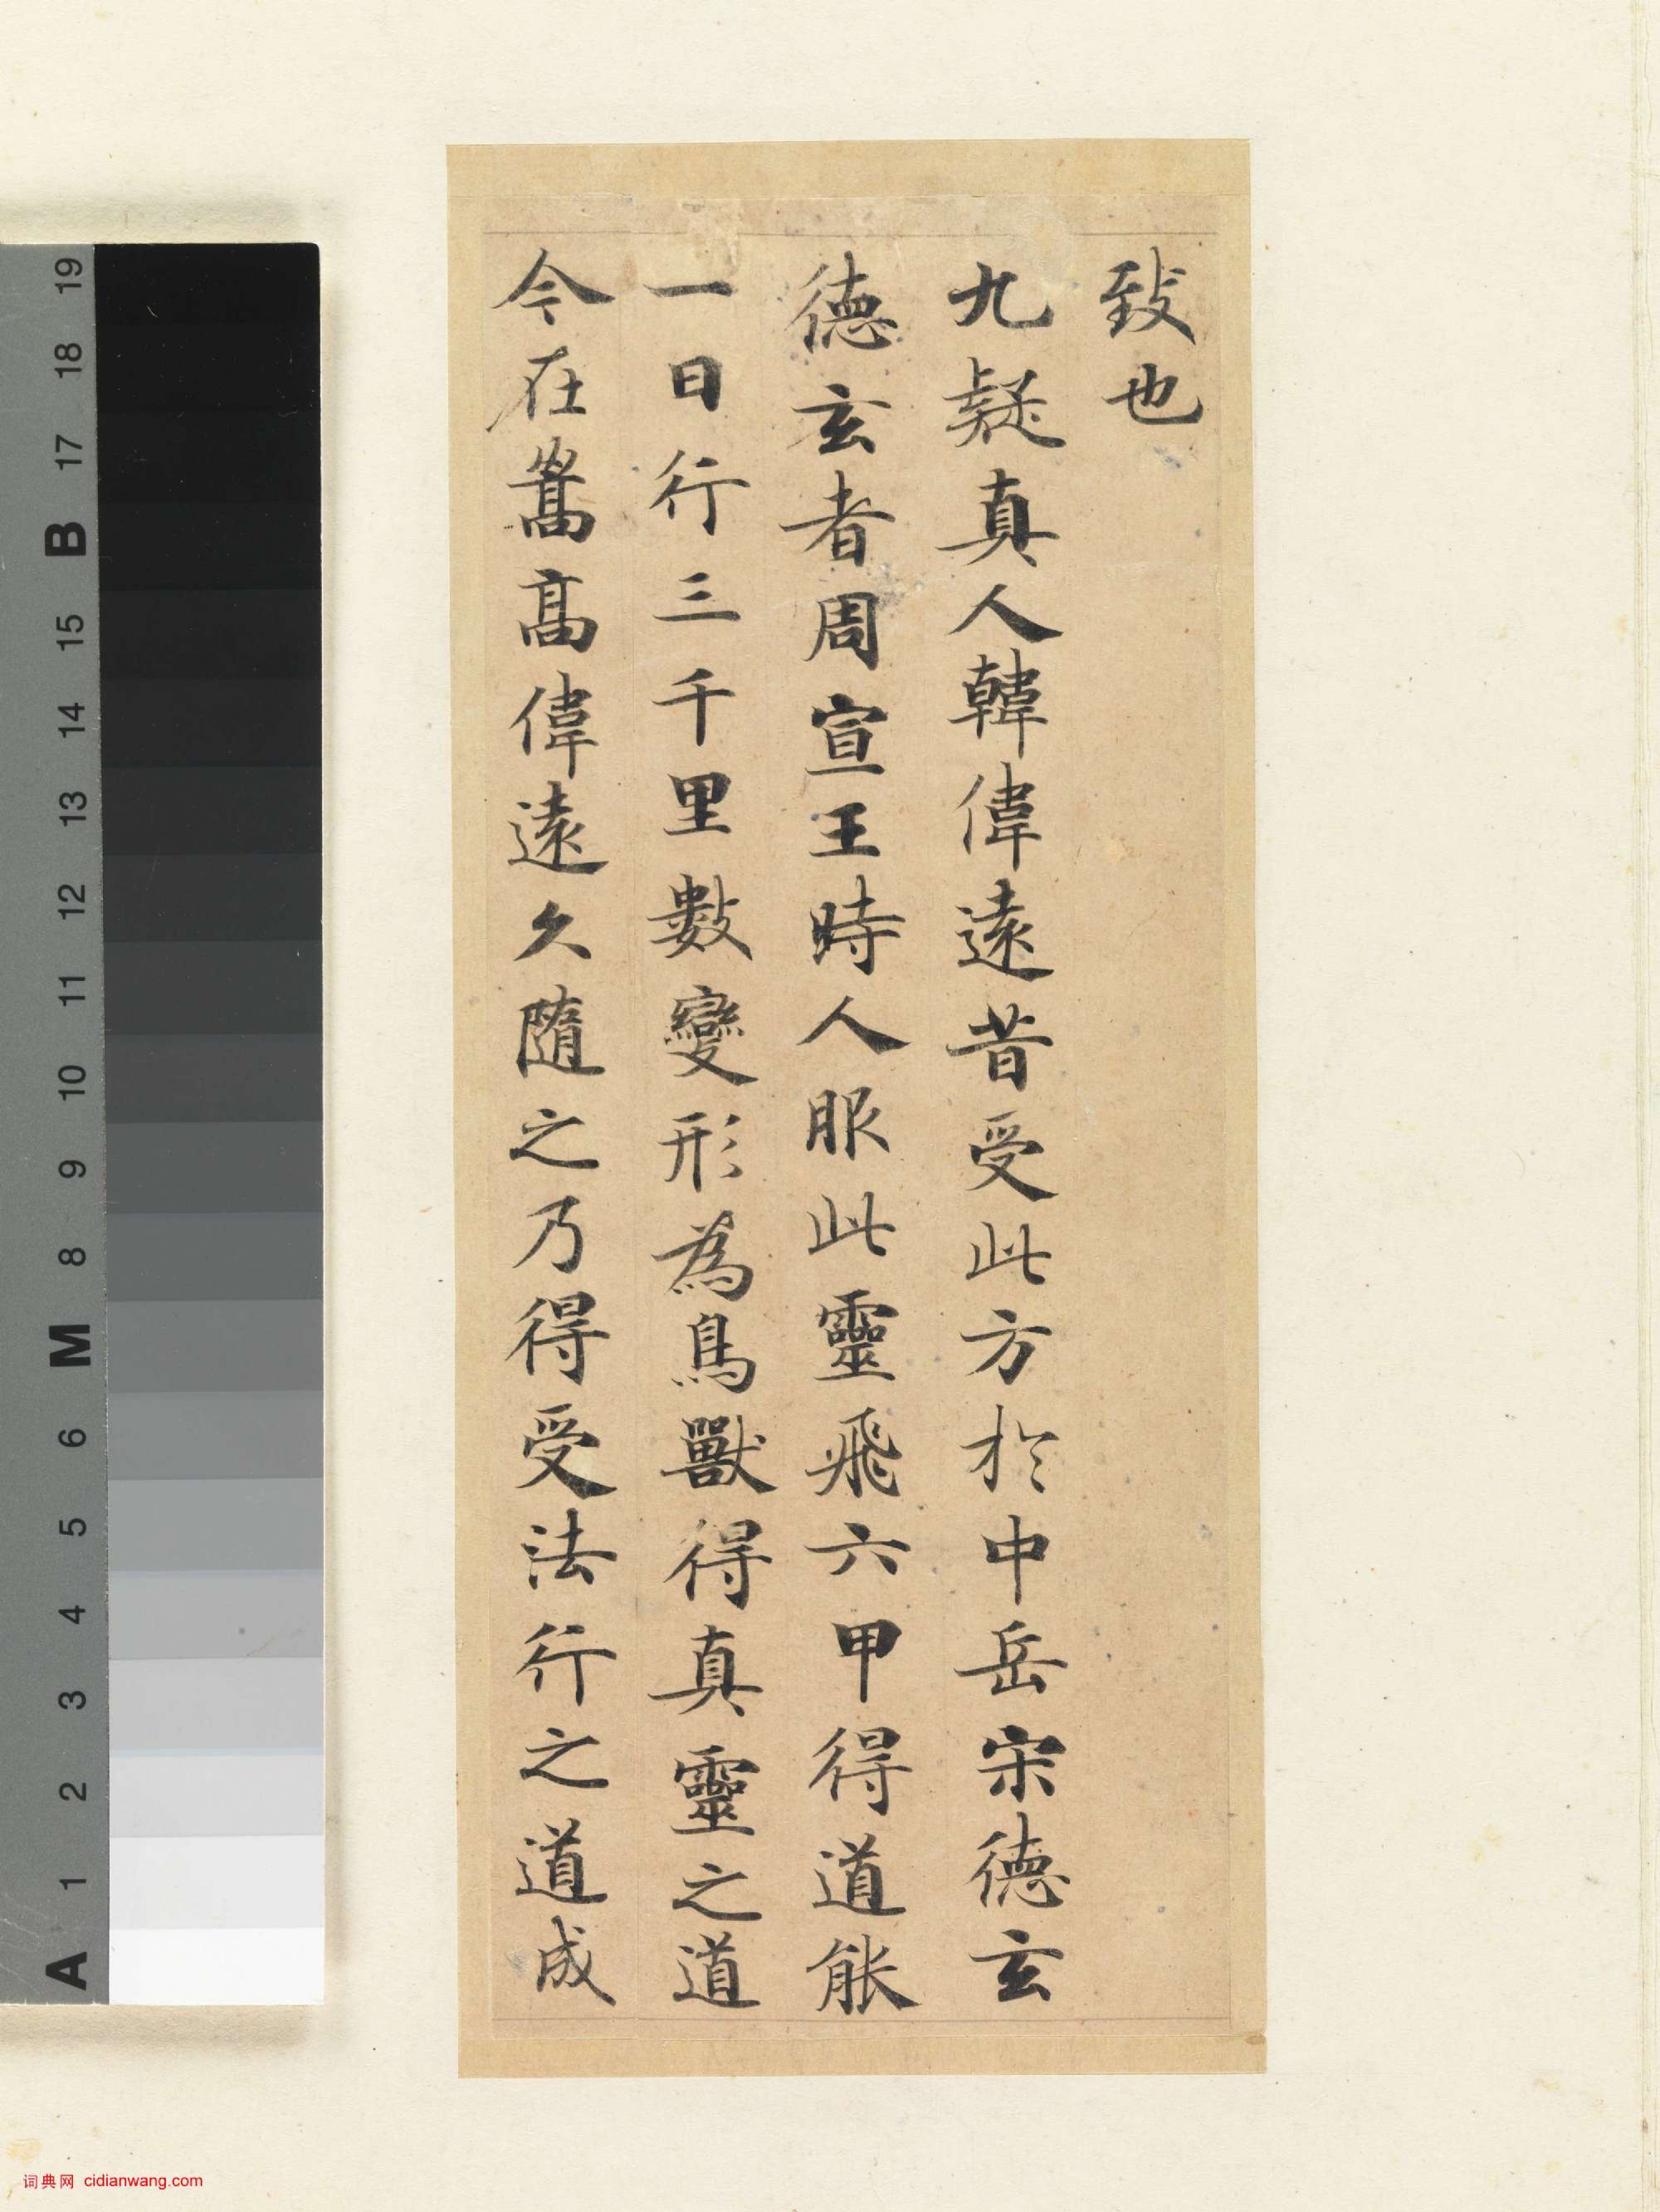 致也
九疑真人韓偉遠昔受此方於中岳宋德玄
德玄者周宣王時人服此靈飛六甲得道能
一日行三千里數變形為鳥獸得真靈之道
今在嵩高偉遠久隨之乃得受法行之道成
19
18
17
B
15
14
13
12
11
10
9
8
M
6
5
4
3
2
1
A
词典网 cidianwang.com